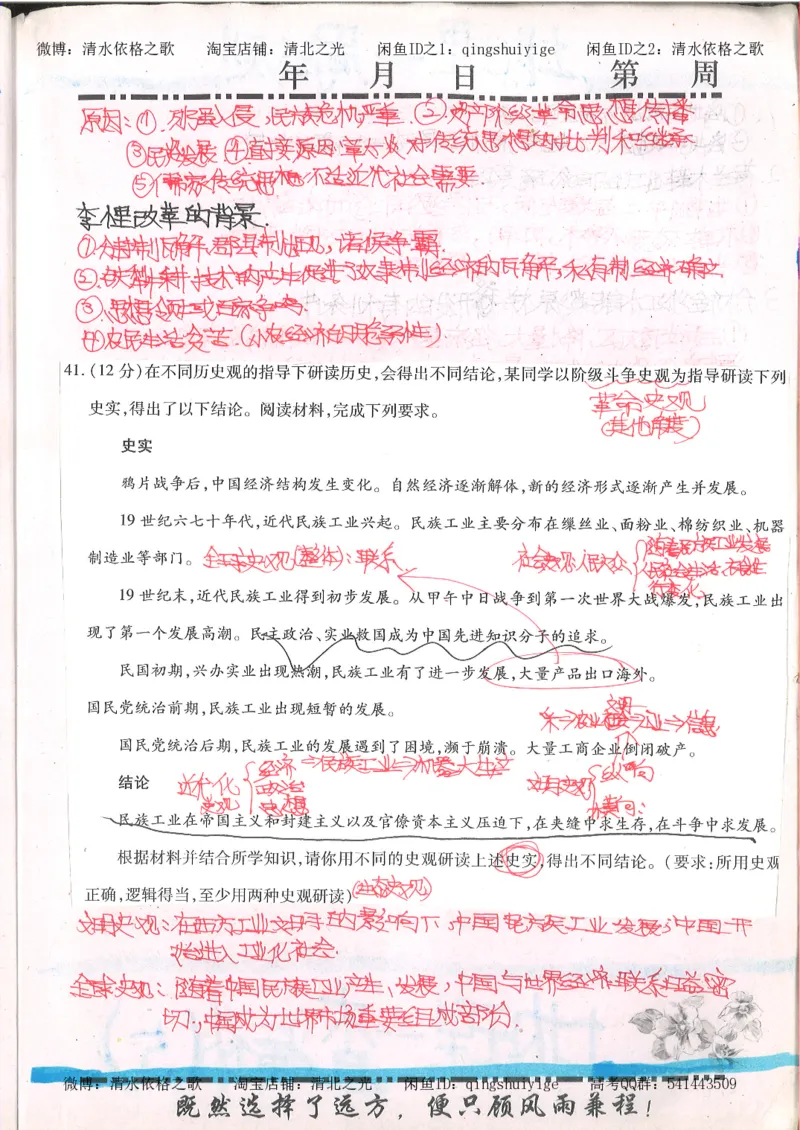 微博：清水依格之歌 淘宝店铺：清北之光 闲鱼ID之1：qingshuiyige 闲鱼ID之2：清水依格之歌
年 月 日 第 周
原因：①.列强入侵，民族危机严重.②.西方资产阶级革命思想传播
③民族发展 ④直接原因：对传统思想的批判和继承
⑤儒家传统思想不适近代社会需要.
李悝改革的背景.
①.分封制瓦解，郡县制出现，诸侯争霸.
②.铁犁牛耕技术的产生促进了奴隶制经济的瓦解，私有制经济确立
③.思想领域百家争鸣.
④农民生活贫苦(小农经济的脆弱性)
41.(12分)在不同历史观的指导下研读历史,会得出不同结论,某同学以阶级斗争史观为指导研读下列
革命史观
史实,得出了以下结论。阅读材料,完成下列要求。
(其他角度)
史实
鸦片战争后,中国经济结构发生变化。自然经济逐渐解体,新的经济形式逐渐产生并发展。
19世纪六七十年代,近代民族工业兴起。民族工业主要分布在缫丝业、面粉业、棉纺织业、机器
制造业等部门。 全球史观(整体)：联系 社会史观：人民大众 随着民族工业发展 民众生活 变化
19世纪末,近代民族工业得到初步发展。从甲午中日战争到第一次世界大战爆发,民族工业出
现了第一个发展高潮。民主政治、实业救国成为中国先进知识分子的追求。
民国初期,兴办实业出现热潮,民族工业有了进一步发展,大量产品出口海外。
国民党统治前期,民族工业出现短暂的发展。
文明
采→农业→工业→信息
国民党统治后期,民族工业的发展遇到了困境,濒于崩溃。大量工商企业倒闭破产。
结论 近代化史观 经济→民族工业→机器大生产 政治 思想 文明史观 纵向 横向：
民族工业在帝国主义和封建主义以及官僚资本主义压迫下,在夹缝中求生存,在斗争中求发展。
根据材料并结合所学知识,请你用不同的史观研读上述史实,得出不同结论。(要求:所用史观
正确,逻辑得当,至少用两种史观研读) (生态史观)
文明史观：在西方工业文明的影响下，中国民族工业发展，中国开
始进入工业化社会.
全球史观：随着中国民族工业产生、发展，中国与世界经济联系日益密
切，中国成为世界市场重要组成部分.
微博：清水依格之歌 淘宝店铺：清北之光 闲鱼ID：qingshuiyige 高考QQ群：541443509
既然选择了远方，便只顾风雨兼程！